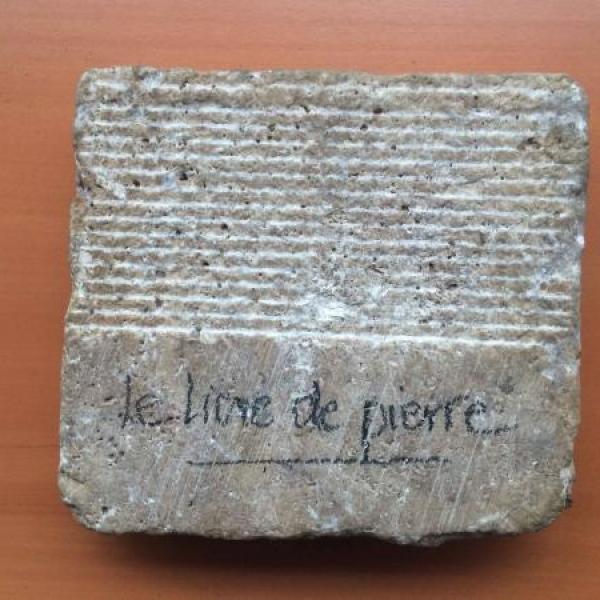 Le livre de pierre